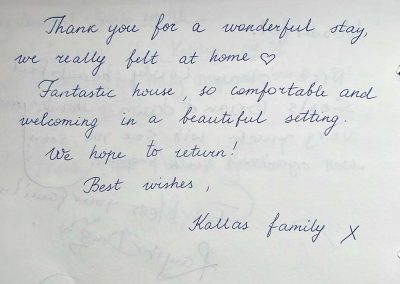 Thank you for a wonderful stay,
we really felt at home ♡
Fantastic house, so comfortable and
welcoming in a beautiful setting.
We hope to return!
Best wishes,
Kallas family X